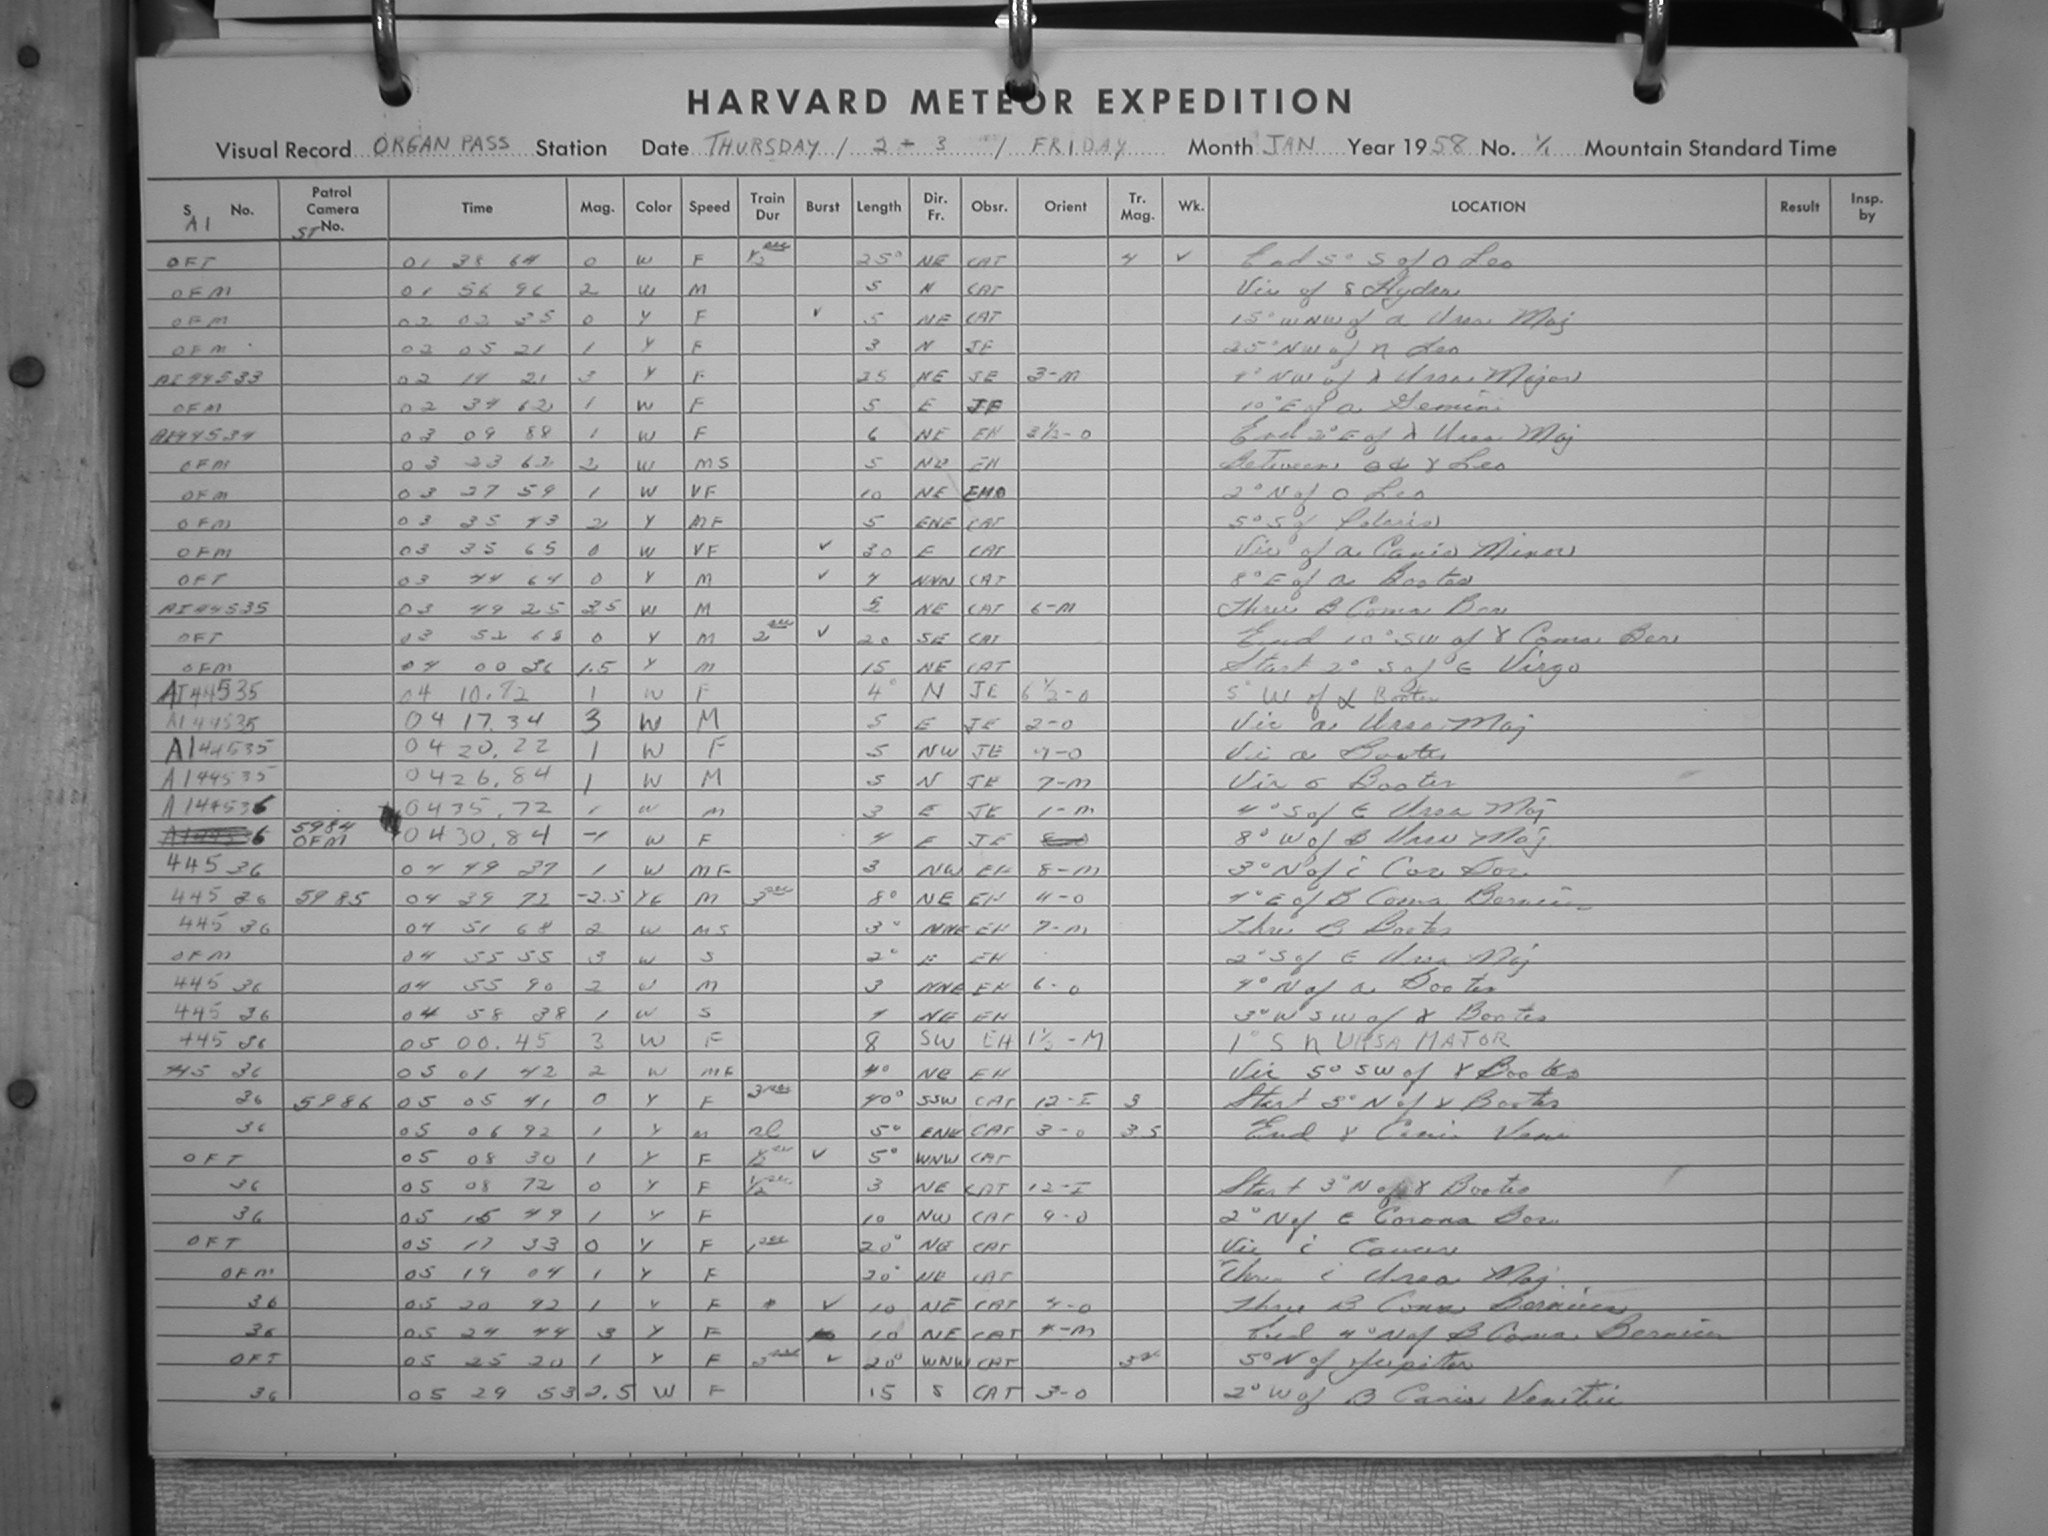 HARVARD METEOR EXPEDITION
Visual Record ORGAN PASS Station Date THURSDAY / 2 - 3 / FRIDAY Month JAN Year 1958 No. 1/1 Mountain Standard Time
S No. Patrol Camera No. Time Mag. Color Speed Train Dur Burst Length Dir. Fr. Obsr. Orient Tr. Mag. Wk. LOCATION Result Insp. by
AI ST
OFT 01 38 64 0 W F 1/2 sec 25° NE CAT 4 ✓ End 5° S of O Leo
OFM 01 56 96 2 W M 5 N CAT Vic of δ Hydra
OFM 02 02 35 0 Y F ✓ 5 NE CAT 15° WNW of α Ursa Maj
OFM 02 05 21 1 Y F 3 N JE 25° NW of η Leo
AI44533 02 14 21 3 Y F 25 NE JE 3-M 4° NW of λ Ursa Major
OFM 02 34 62 1 W F 5 E JE 10° E of α Gemini
AI44534 03 09 88 1 W F 6 NE EH 3 1/2-O End 2° E of λ Ursa Maj
OFM 03 23 62 2 W MS 5 EH Between α & γ Leo
OFM 03 27 59 1 W VF 10 NE 2° N of O Leo
OFM 03 35 43 2 Y MF 5 ENE CAT 5° S of Polaris
OFM 03 35 65 0 W VF ✓ 30 E CAT Vic of α Canis Minor
OFT 03 44 64 0 Y M ✓ 4 NNW CAT 8° E of α Bootes
AI44535 03 49 25 3.5 W M 5 NE CAT 6-M Thru β Coma Ber
OFT 03 52 68 0 Y M 2 sec ✓ 20 SE CAT End 10° SW of γ Coma Ber
OFM 04 00 36 1.5 Y M 15 NE CAT Start 2° S of ε Virgo
AI44535 04 10.82 1 W F 4° N JE 6 1/2-O 5° W of α Bootes
AI44535 04 17.34 3 W M 5 E JE 2-O Vic α Ursa Maj
AI44535 04 20.22 1 W F 5 NW JE 4-O Vic α Bootes
AI44535 04 26.84 1 W M 5 N JE 7-M Vic σ Bootes
AI44536 04 35.72 1 W M 3 E JE 1-M 4° S of ε Ursa Maj
5984 OFM 04 30.84 -1 W F 4 E JE 8° W of β Ursa Maj
445 36 04 49 37 1 W MF 3 NW EH 8-M 3° N of i Cor Bor
445 36 5985 04 39 72 -2.5 M 3 sec 8° NE EH 4-O 4° E of β Coma Bernices
445 36 04 51 68 2 W MS 3° NNE EH 7-M Thru β Bootes
OFM 04 55 55 3 W S 2° E EH 2° S of ε Ursa Maj
445 36 04 55 90 2 W M 3 NNE EH 6-O 4° N of α Bootes
445 36 04 58 38 1 W S NE EH 3° WSW of γ Bootes
445 36 05 00.45 3 W F 8 SW EH 1 1/2-M 1° S η URSA MAJOR
445 36 05 01 42 2 W MF 4° NE EH Vic 5° SW of γ Bootes
36 5986 05 05 41 0 Y F 3 sec 40° SSW CAT 12-I 3 Start 3° N of γ Bootes
36 05 06 92 1 Y M 5° ENE CAT 3-O 3.5 End γ Canis Vena
OFT 05 08 30 1 Y F 1/2 sec ✓ 5° WNW CAT
36 05 08 72 0 Y F 1/2 sec 3 NE CAT 12-I Start 3° N of γ Bootes
36 05 15 49 1 Y F 10 NW CAT 9-O 2° N of ε Corona Bor
OFT 05 17 33 0 Y F 1 sec 20° NE CAT Vic i Cancer
OFM 05 19 04 1 Y F 20° NE CAT Thru i Ursa Maj.
36 05 20 92 1 Y F ✓ 10 NE CAT 4-O Thru β Coma Bernices
36 05 24 44 3 Y F 10 NE CAT 4-M End 4° N of β Coma Bernices
OFT 05 25 20 1 Y F 3 sec ✓ 20° WNW CAT 5° N of Jupiter
36 05 29 53 2.5 W F 15 S CAT 3-O 2° W of β Canis Venitici